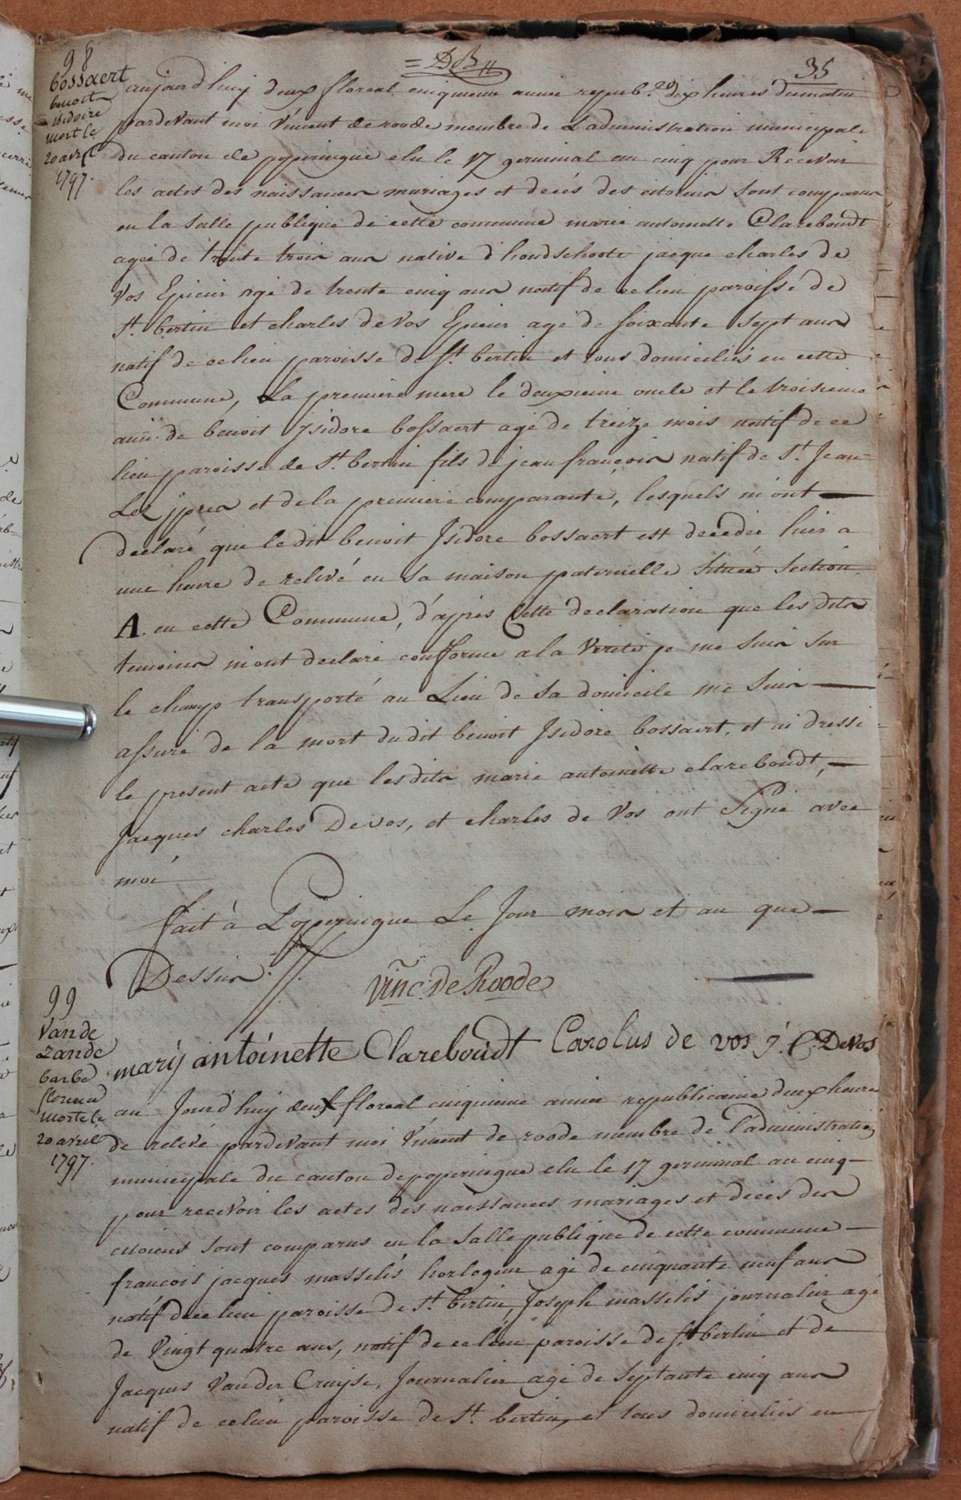 = DB = 35
98
bossaert
benoit
isidore
mort le
20 avril
1797.
aujourd'huy deux floreal cinquieme année republ.ne dix heures du matin
pardevant moi Vincent de roode membre de L'administration municipale
du canton de poperingue elu le 17 germinal an cinq pour Recevoir
les actes des naissances mariages et decés des citoiens sont comparus
en la salle publique de cette commune marie antoinette Clareboudt
agée de trente trois ans native d'hondschoote jacque charles de
Vos Epicier agé de trente cinq ans natif de ce lieu paroisse de
St. bertin et charles de Vos Epicier agé de soixante sept ans
natif de ce lieu paroisse de St bertin et tous domiciliés en cette
Commune, La premiere mere le deuxieme oncle et le troisieme
ami de benoit Isidore bossaert agé de treize mois natif de ce
lieu paroisse de St. bertin fils de jean françois natif de St. Jean
Lez ypres et de la premiere comparante, lesquels m'ont —
declaré que le dit benoit Isidore bossaert est decedée hier a
une heure de relivé en sa maison paternelle située section
A. en cette Commune, d'après cette declaration que les dits
temoins m'ont declaré conforme a la Verité je me suis sur
le champ transporté au Lieu de sa domicile me suis —
assuré de la mort du dit benoit Isidore bossaert, et ai dressé
le present acte que lesdits marie antoinette clareboudt, —
Jacques charles Devos, et charles de Vos ont Signé avec
moi
fait à Poperingue Le Jour mois et an que —
Dessus.
Vinc. de Roode
marij antoinette Clareboudt Carolus de vos J. C. Devos
99
Van de
Zande
barbe
florence
morte le
20 avril
1797.
au Jourd'huy deux floreal cinquieme année republicaine deux heures
de relevé pardevant moi Vincent de roode membre de l'administration
municipale du canton de poperingue elu le 17 germinal an cinq —
pour recevoir les actes des naissances mariages et decés des
citoiens sont comparus en la salle publique de cette commune —
francois jacques masselis horloger agé de cinquante neuf ans
natif de ce lieu paroisse de St. bertin, Joseph masselis journalier agé
de Vingt quatre ans, natif de ce lieu paroisse de St bertin et de
Jacques Van der Cruyse, Journalier agé de Septante cinq ans
natif de ce lieu paroisse de St. bertin, et tous domiciliés en